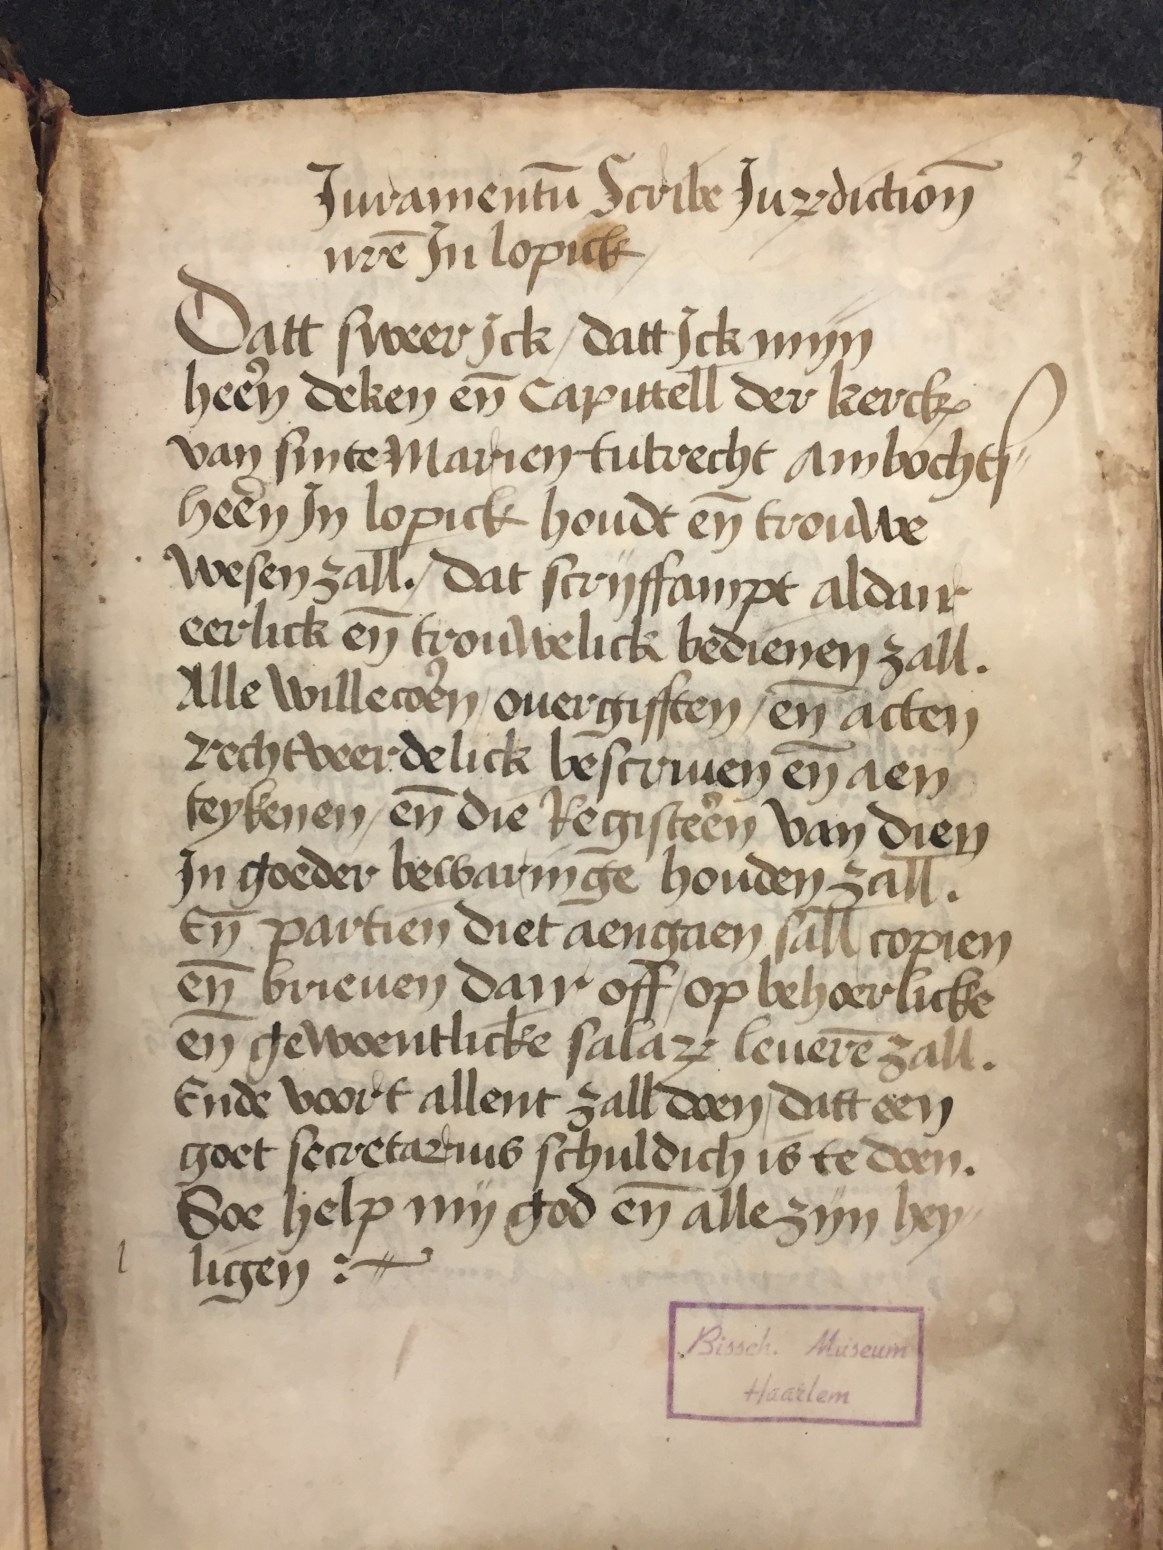 2
Iuramentū Scribe Iurzdictioñ
nrē In lopick
Datt sweer ick / datt Ick mijn
heẽn deken eñ Capittell der kerck
van sinte Marien tutrecht Ambocht
heẽn In lopick houdt eñ trouwe
wesen zall. / Dat scrijffampt aldair
eerlick eñ trouwelick bedienen zall.
Alle willecoẽn / ouergifften / eñ acten
rechtveerdelick bescriuen eñ aen
teykenen / eñ die Registeẽn van dien
In goeder bewaringe houden zall.
Eñ partien diet aengaen sall copien
eñ brieuen dair off / op behoerlicke
eñ gewoentlicke salarz leuerē zall.
Ende voort allent zall doen / datt een
goet secretarius schuldich is te doen.
Soe help mij god eñ alle zijn hey
ligen :~
1
Bissch. Museum
Haarlem